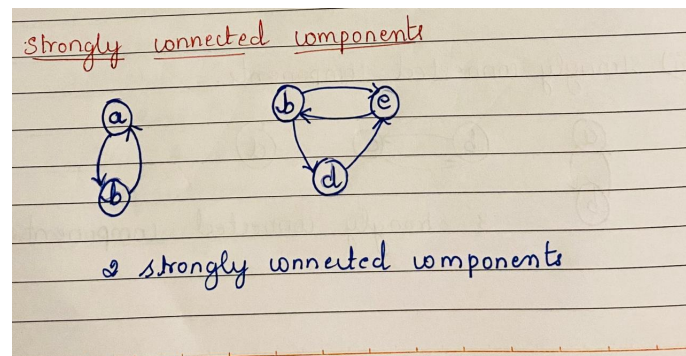 strongly connected components
a
b e
b
d
2 strongly connected components